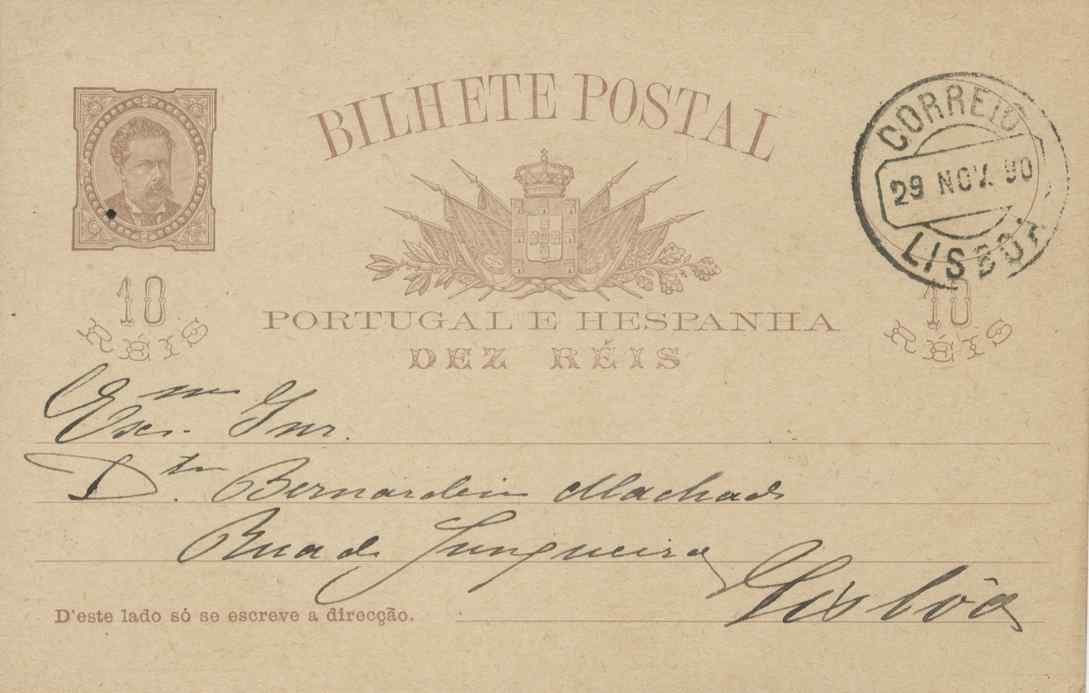 BILHETE POSTAL
CORREIO
29 NOV. 90
LISBOA
10
RÉIS
PORTUGAL E HESPANHA
DEZ RÉIS
10
RÉIS
Exmo Snr.
Dtor Bernardino Machado
Rua da Junqueira
Lisbôa
D'este lado só se escreve a direcção.